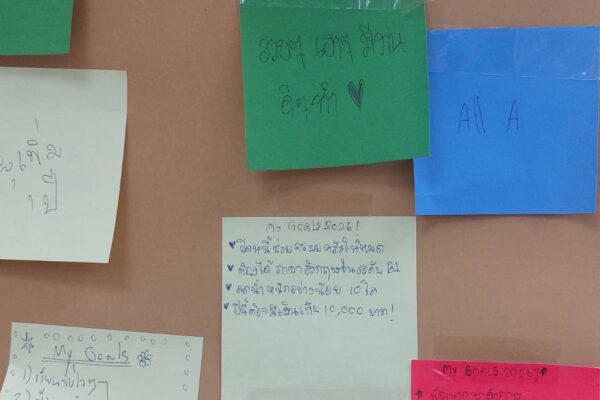 รวยๆ เฮงๆ มีงาน
ดีๆทำ
All A
เพิ่ม
ปี
MY GOALS 2026!
ปิดหนี้ช่วยครอบครัวให้หมด
ต้องได้ ภาษาอังกฤษในระดับ B1
ลดน้ำหนักอย่างน้อย 10 โล
ปีนี้ต้องมีเงินเก็บ 10,000 บาท!
My Goals
1)
MY GOALS 2026